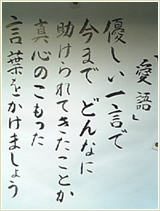 「愛語」
優しい一言で
今まで どんなに
助けられてきたことか
真心のこもった
言葉をかけましょう